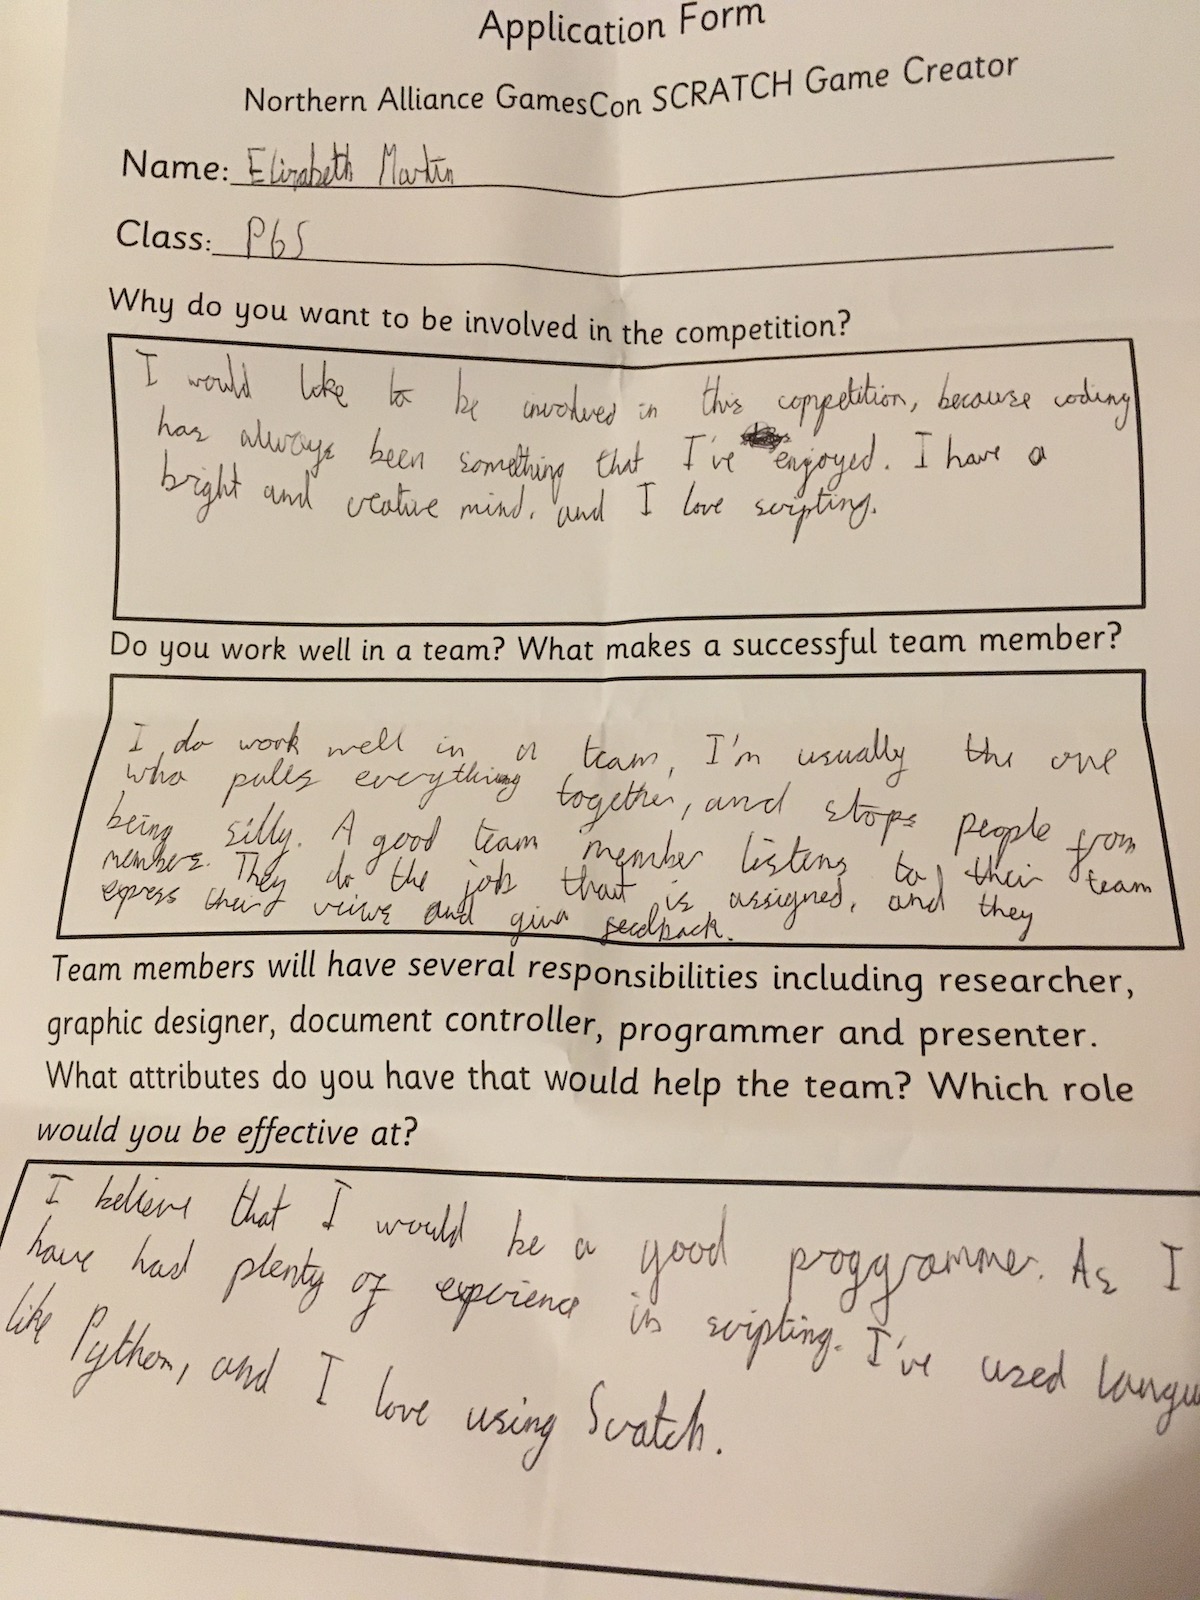 Application Form
Northern Alliance GamesCon SCRATCH Game Creator
Name: Elizabeth Martin
Class: P6S
Why do you want to be involved in the competition?
I would like to be involved in this coppetition, because coding
has always been something that I've enjoyed. I have a
bright and creative mind, and I love scripting.
Do you work well in a team? What makes a successful team member?
I do work well in a team, I'm usually the one
who pulls everything together, and stops people from
being silly. A good team member listens to their team
members. They do the job that is assigned, and they
express their veiws and give feedback.
Team members will have several responsibilities including researcher,
graphic designer, document controller, programmer and presenter.
What attributes do you have that would help the team? Which role
would you be effective at?
I believe that I would be a good proggrammer. As I
have had plenty of experience in scripting. I've used langu
like Python, and I love using Scratch.